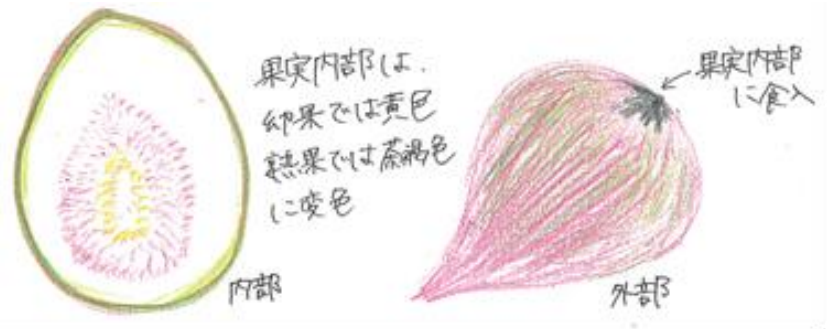 果実内部は、
幼果では黄色
熟果では茶褐色
に変色
内部
果実内部
に食入
外部